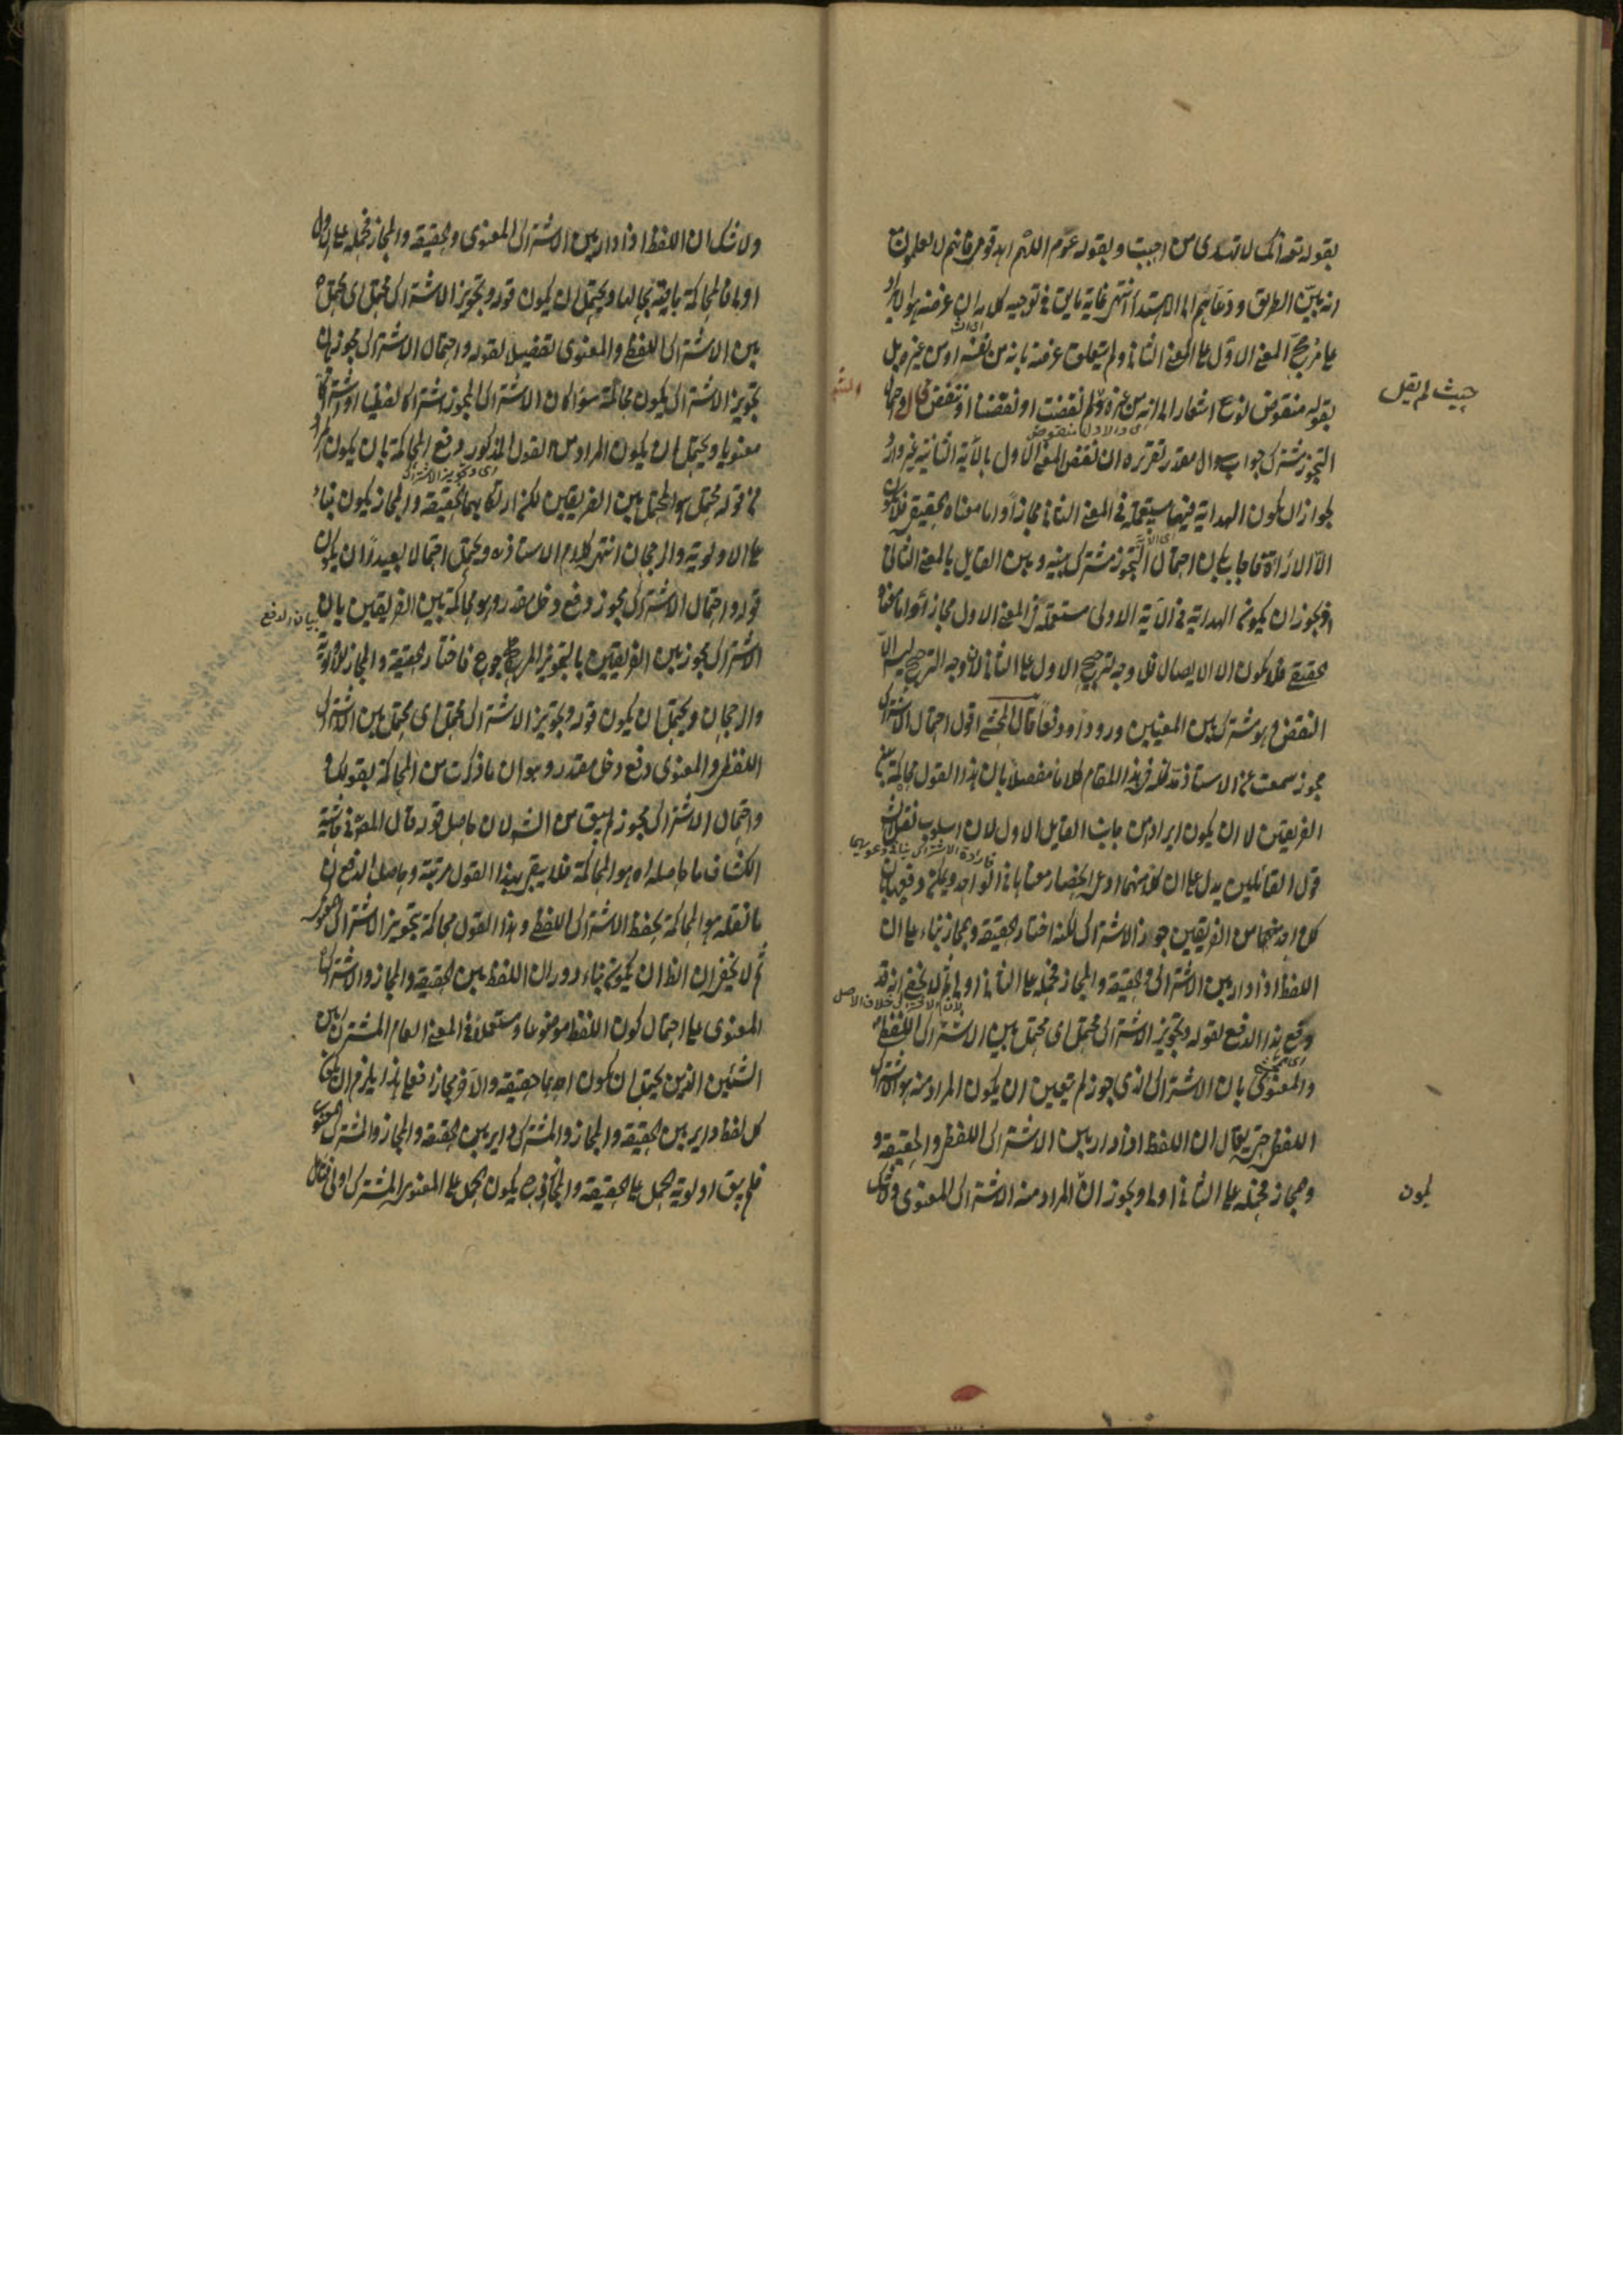 بقوله تعه انك لا تهدى من احببت وبقوله عوم اللهم اهد قومى فانهم لا يعلمون مع
انه بين الطريق ودعاهم الى الاهتداء انتهى غاية ما يق فى توجيه كلامه ان غرضه هو الايراد
على مرجح المعنى الاول على المعنى الثانى ولم يتعلق غرضه بانه من نفسه او من غيره بل
حيث لم يقل
بقوله منقوض نوع اشعار الى انه من غيره ولم نقضت او نقضنا او تنقض
التجوز مشترك جواب سوال مقدر تقريره ان نقض المعنى الاول بالآية الثانية غير وارد
لجواز ان يكون الهداية فيها مستعملة فى المعنى الثانى مجازا واما معناه الحقيقى فلا يكون
الا الاراءة فاجاب بان احتمال التجوز مشترك بينه وبين القايل بالمعنى الثانى
اذ يجوز ان يكون الهداية فى الآية الاولى مستعملة فى المعنى الاول مجازا واما معناه
الحقيقى فلا يكون الا الايصال فلا وجه لترجيح الاول على الثانى لان وجه الترجيح ليس الا
النقض وهو مشترك بين المعنيين ورودا ودفعا قال المحشى اقول احتمال الاشتراك
مجوز سمعت عن الاستاذ مد ظله فى هذا المقام كلاما مفصلا بان هذا القول محاكمة بين
الفريقين لا ان يكون ايرادا من جانب القايل الاول لان اسلوب نقل الش
فارادة الاشتراك ينافى دعويهما
قول القائلين يدل على ان كلا منهما ادعى انحصار معناها فى الواحد ويمكن دفعها بان
كل احد منهما من الفريقين جوز الاشتراك لكنه اختار الحقيقة والمجاز بناء على ان
اللفظ اذا دار بين الاشتراك والحقيقة والمجاز فحمله على الثانى اولى ثم لا يخفى انه قد
لان الاشتراك خلاف الاصل
وقع هذا الدفع بقوله وتجويز الاشتراك محتمل اى محتمل بين الاشتراك اللفظى
والمعنوى بان الاشتراك الذى جوز لم يتعين ان يكون المراد منه هو الاشتراك
اللفظى حتى يقال ان اللفظ اذا دار بين الاشتراك اللفظى والحقيقة و
يكون
المجاز فحمله على الثانى اولى ويجوز ان المراد منه الاشتراك المعنوى ولا شك
ولا شك ان اللفظ اذا دار بين الاشتراك المعنوى والحقيقة والمجاز فحمله على الاول
اولى فالمحاكمة باقية بحالها ويحتمل ان يكون قوله وتجويز الاشتراك محتمل اى محتمل
بين الاشتراك اللفظى والمعنوى تفصيل لقوله واحتمال الاشتراك مجوز بان
تجويز الاشتراك يكون محاكمة سواء كان الاشتراك المجوز اشتراكا لفظيا او اشتراكا
معنويا ويحتمل ان يكون المراد من القول المذكور دفع المحاكمة بان يكون المراد
اى وتجويز الاشتراك
من قوله محتمل هو المحتمل بين الفريقين لكن ارتكابهما الحقيقة والمجاز يكون بناء
على الاولوية والرجحان انتهى كلام الاستاذ وه ويحتمل احتمالا بعيدا ان يكون
قوله واحتمال الاشتراك مجوز دفع دخل مقدر وهو محاكمة بين الفريقين بان
بيان الدفع
الاشتراك مجوز بين الفريقين بالتجويز المرجوح فاختار الحقيقة والمجاز للاولوية
والرجحان ويحتمل ان يكون قوله وتجويز الاشتراك محتمل اى محتمل بين الاشتراك
اللفظى والمعنوى دفع دخل مقدر وهو ان ما ذكرت من المحاكمة بقولك
واحتمال الاشتراك مجوز لم يبق من الش لان حاصل قوله قال المصنف فى حاشية
الكشاف ما حاصله اه هو المحاكمة فلا يبقى لهذا القول مرتبة وحاصل الدفع ان
ما نقله هو المحاكمة بحفظ الاشتراك اللفظى وهذا القول محاكمة بتجويز الاشتراك المعنوى
ثم لا يخفى ان الظ ان يكون بناء دوران اللفظ بين الحقيقة والمجاز والاشتراك
المعنوى على احتمال كون اللفظ موضوعا ومستعملا فى المعنى العام المشترك بين
الشيئين الذين يحتمل ان يكون احدهما حقيقة والآخر مجازا فعلى هذا يلزم ان يكون
كل لفظ داير بين الحقيقة والمجاز والمشترك داير بين الحقيقة والمجاز والمشترك المعنوى
فلم يبق اولوية الحمل على الحقيقة والمجاز اذ ح يكون الحمل على المعنوى المشترك اولى